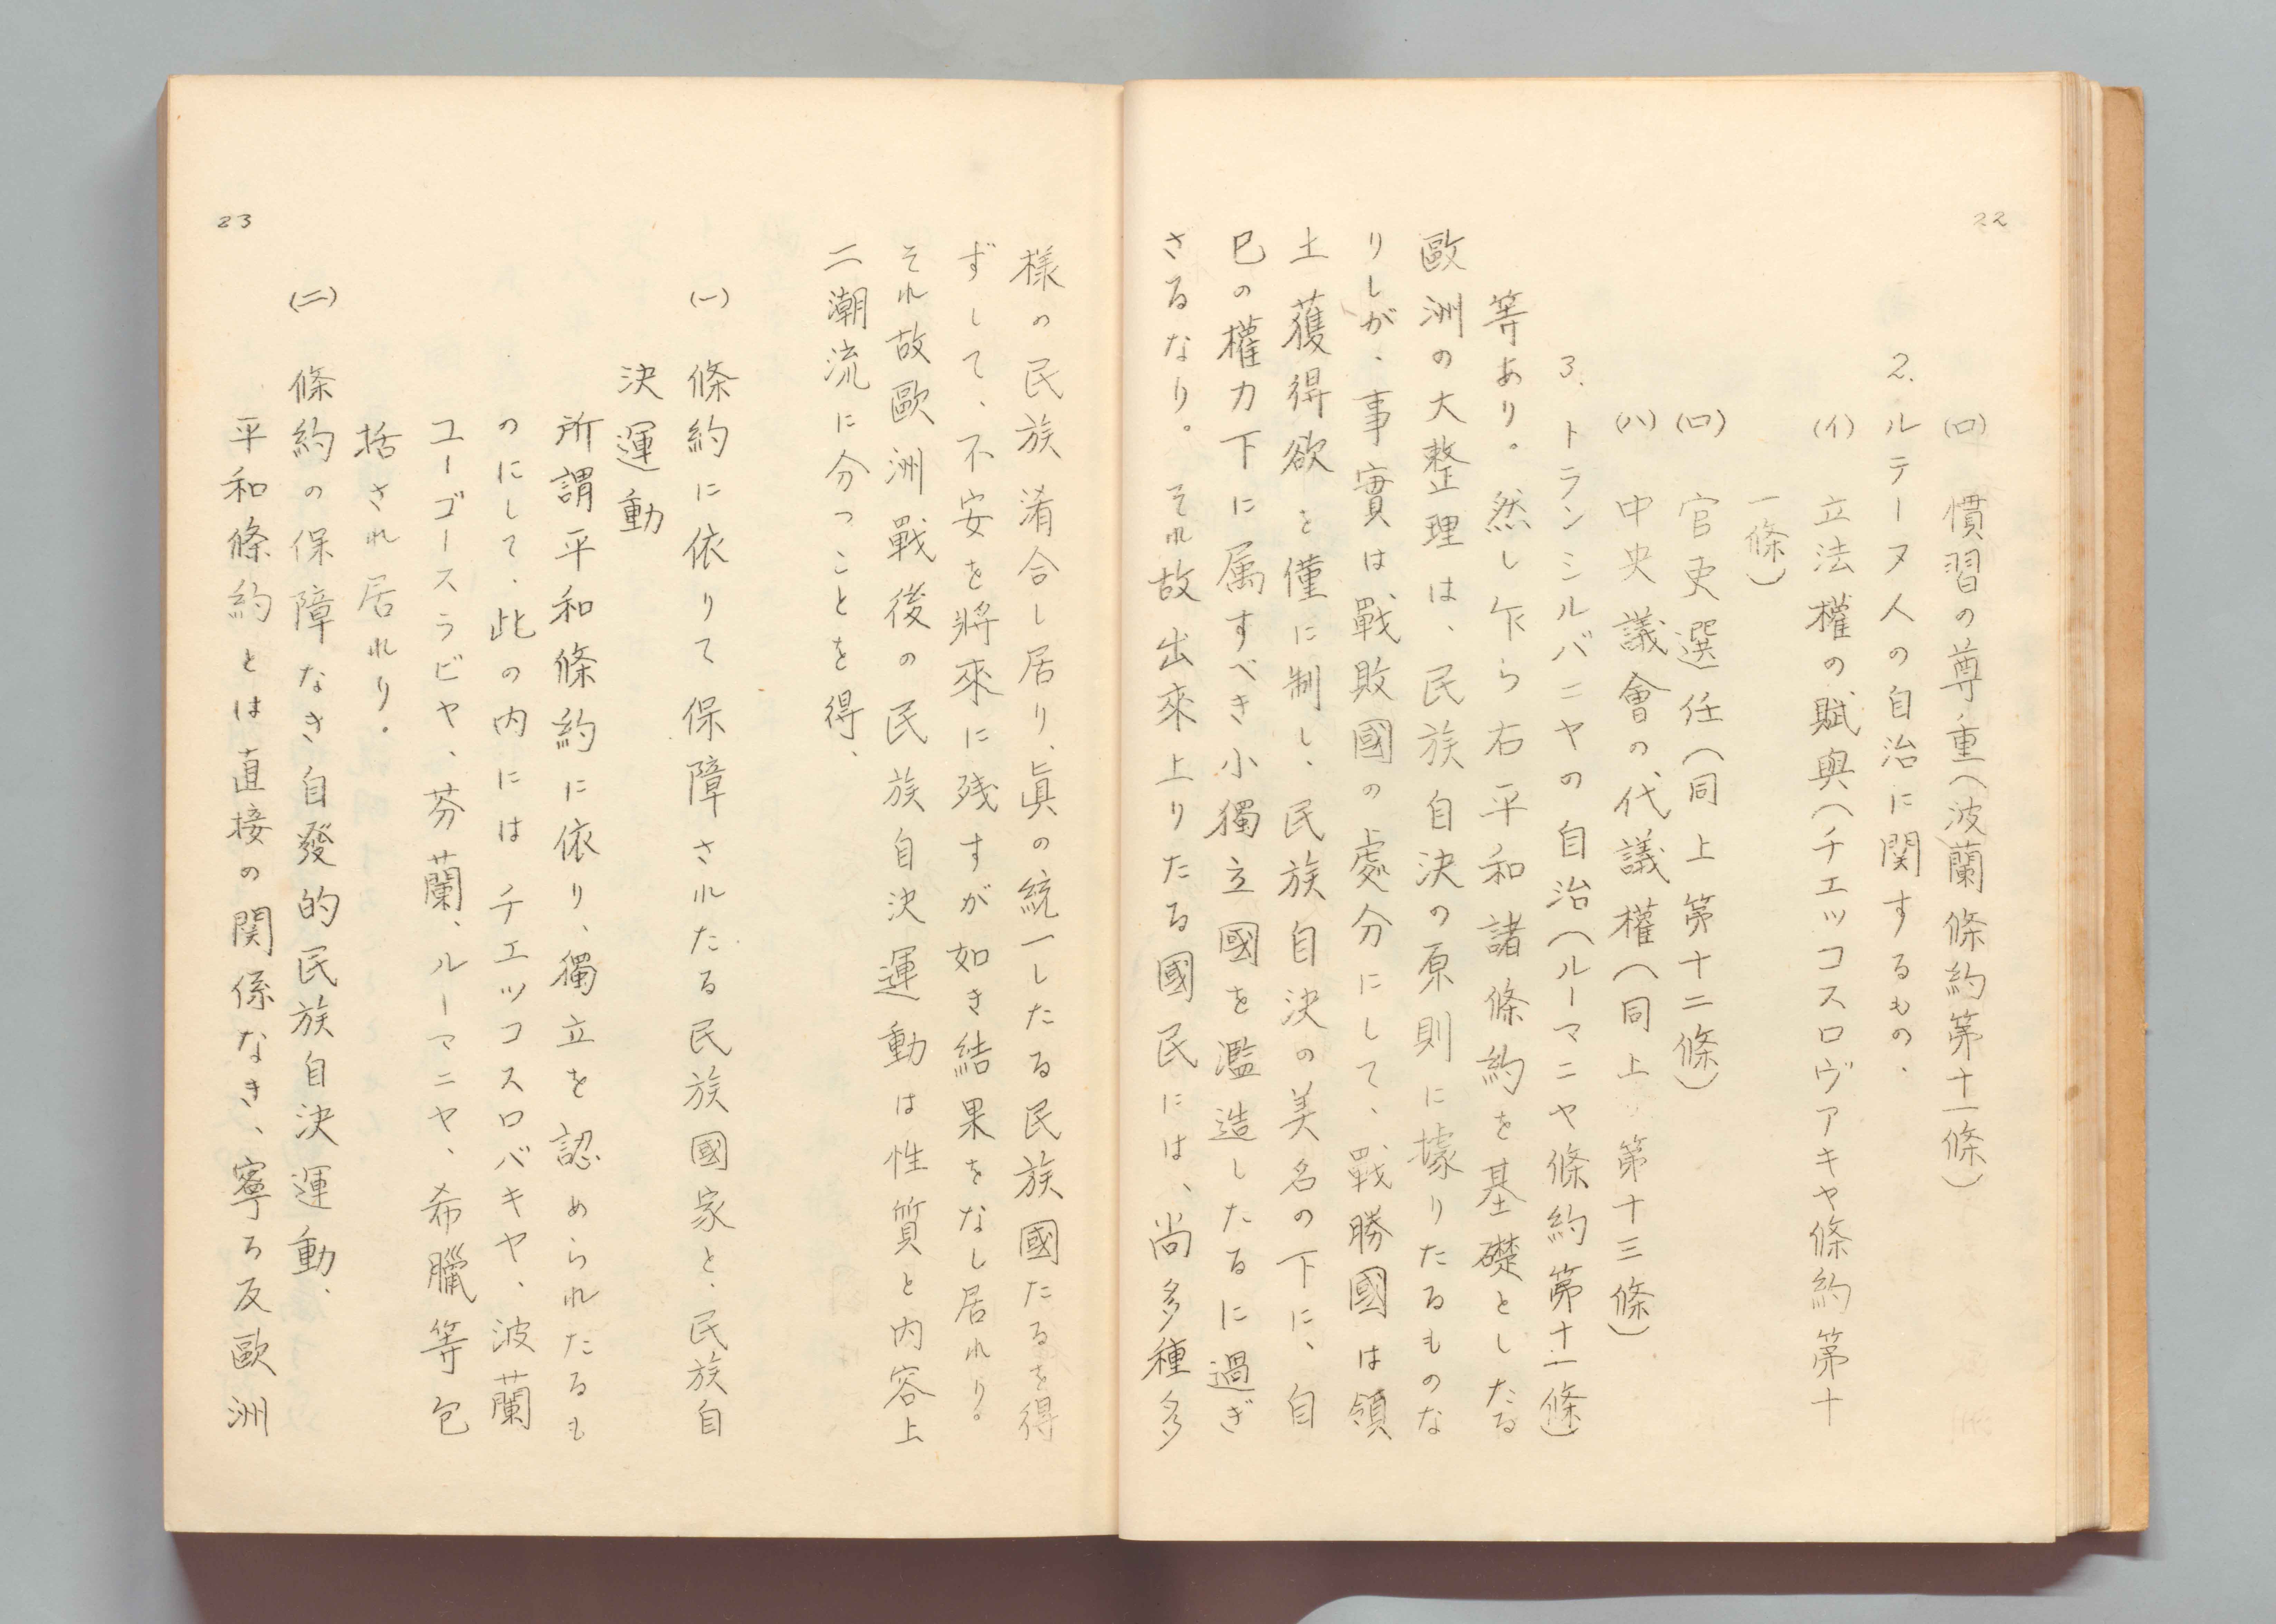 22
(ロ) 慣習の尊重(波蘭條約第十一條)
2. ルテーヌ人の自治に関するもの、
(イ) 立法權の賦與(チエッコスロヴアキヤ條約第十
一條)
(ロ) 官吏選任(同上第十二條)
(ハ) 中央議會の代議權(同上第十三條)
3. トランシルバニヤの自治(ルーマニヤ條約第十一條)
等あり。然し乍ら右平和諸條約を基礎としたる
歐洲の大整理は、民族自決の原則に據りたるものな
りしが、事實は戰敗國の處分にして、戰勝國は領
土獲得欲を僅に制し、民族自決の美名の下に、自
己の權力下に属すべき小獨立國を濫造したるに過ぎ
さるなり。それ故出來上りたる國民には、尚多種多
樣の民族淆合し居り、眞の統一したる民族國たるを得
ずして、不安を將來に残すが如き結果をなし居れり。
それ故歐洲戰後の民族自決運動は性質と内容上
二潮流に分つことを得、
(一) 條約に依りて保障されたる民族國家と、民族自
決運動
所謂平和條約に依り、獨立を認められたるも
のにして、此の内にはチエッコスロバキヤ、波蘭
ユーゴースラビヤ、芬蘭、ルーマニヤ、希臘等包
括され居れり。
(二) 條約の保障なき自發的民族自決運動、
平和條約とは直接の関係なき、寧ろ反歐洲
23